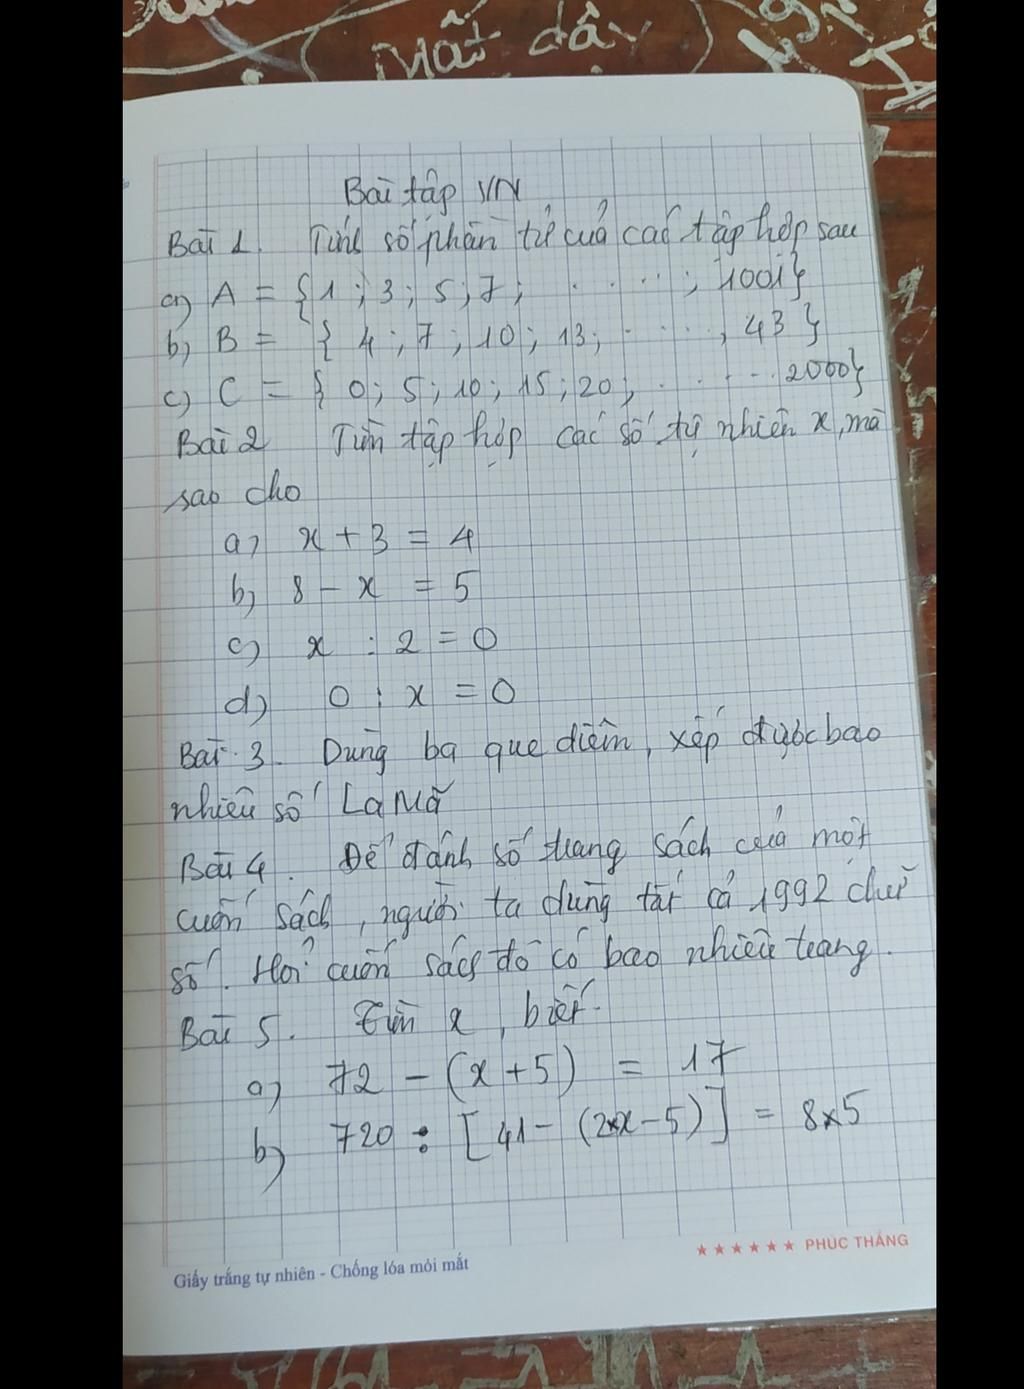 Mất dậy
Bài tập VN
Bài 1. Tính số phần tử của các tập hợp sau
a) A = { 1 ; 3 ; 5 ; 7 ; . . . . ; 1001}
b) B = { 4 ; 7 ; 10 ; 13 ; . . . . , 43 }
c) C = { 0 ; 5 ; 10 ; 15 ; 20 ; . . . . . 2000}
Bài 2 Tìm tập hợp các số tự nhiên x, mà
sao cho
a) x + 3 = 4
b) 8 - x = 5
c) x : 2 = 0
d) 0 : x = 0
Bài 3. Dùng ba que diêm, xếp được bao
nhiêu số La Mã
Bài 4. Để đánh số trang sách của một
cuốn sách, người ta dùng tất cả 1992 chữ
số. Hỏi cuốn sách đó có bao nhiêu trang.
Bài 5. Tìm x, biết.
a) 72 - (x + 5) = 17
b) 720 : [41 - (2×x - 5)] = 8×5
★★★★★★ PHÚC THẮNG
Giấy trắng tự nhiên - Chống lóa mỏi mắt